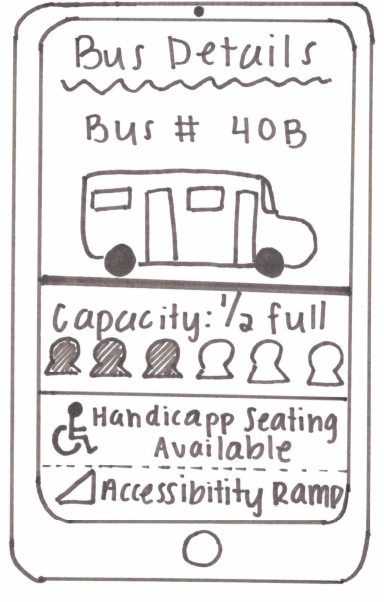 Bus Details
Bus # 40B
Capacity: 1/2 full
Handicapp Seating
Available
Accessibitity Ramp